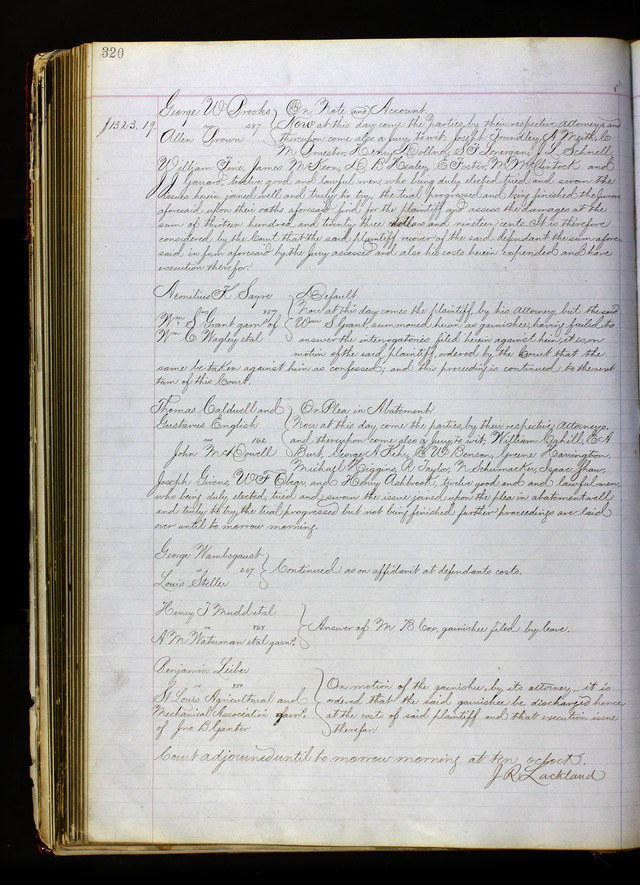 320
George W Brooks } On Note and Account
$1323.19 vs 247 } Now at this day come the Parties, by their respective Attorneys, and
Allen Brown } thereupon come also a Jury, to wit, Joseph
Henry
William Fine, James McKeon, D B Healey, E Foster, McClintock and
twelve good and lawful men, who being duly elected tried and sworn the
issues herein joined well and truly to try, the trial progressed and being finished the Jurors
aforesaid upon their oaths aforesaid find for the plaintiff and assess the damages at the
sum of thirteen hundred and twenty three dollars and nineteen cents. It is therefore
considered by the Court that the said plaintiff recover of the said defendant the sum afore
said in form aforesaid by the Jury assessed and also his costs herein expended and have
execution therefor.
Aemilius K Sayre } Default
vs 257 } Now at this day comes the plaintiff by his Attorney, but the said
Wm S Grant garn. of } Wm S Grant, summoned herein as garnishee, having failed to
Wm C Wagley et al } answer the interrogatories filed herein against him, it is on
motion of the said Plaintiff, ordered by the Court that the
same be taken against him as confessed; and this proceeding is continued to the next
term of this Court.
Thomas Caldwell and } On Plea in Abatement
Gustavus English } Now at this day come the parties, by their respective Attorneys,
vs 162 } and thereupon come also a Jury, to wit, William Cahill, E A
John McDowell } Burt, George A W Benson, Greene Harrington,
Michael Higgins, A Taylor, N Schumacker, Isaac Shaw,
Joseph Givens, W F and Henry Ashbrook, twelve good and and lawful men,
who being duly elected, tried and sworn the issue joined upon the plea in abatement well
and truly to try, the trial progressed but not being finished further proceedings are laid
over until to morrow morning.
George Wambsganst
vs 267 } Continued as on affidavit at defendants costs.
Louis Steller
Henry T Mudd et al
vs 268 } Answer of M B Cox, garnishee filed by leave.
A M Waterman et al garn.
Benjamin Leiber
vs } On motion of the garnishee, by its attorney, it is
St Louis Agricultural and } ordered that the said garnishee be discharged hence
Mechanical Association garn. } at the costs of said plaintiff and that execution issue
of Jno B Ganter } therefor.
Court adjourned until to morrow morning at ten oclock.
J R Lackland